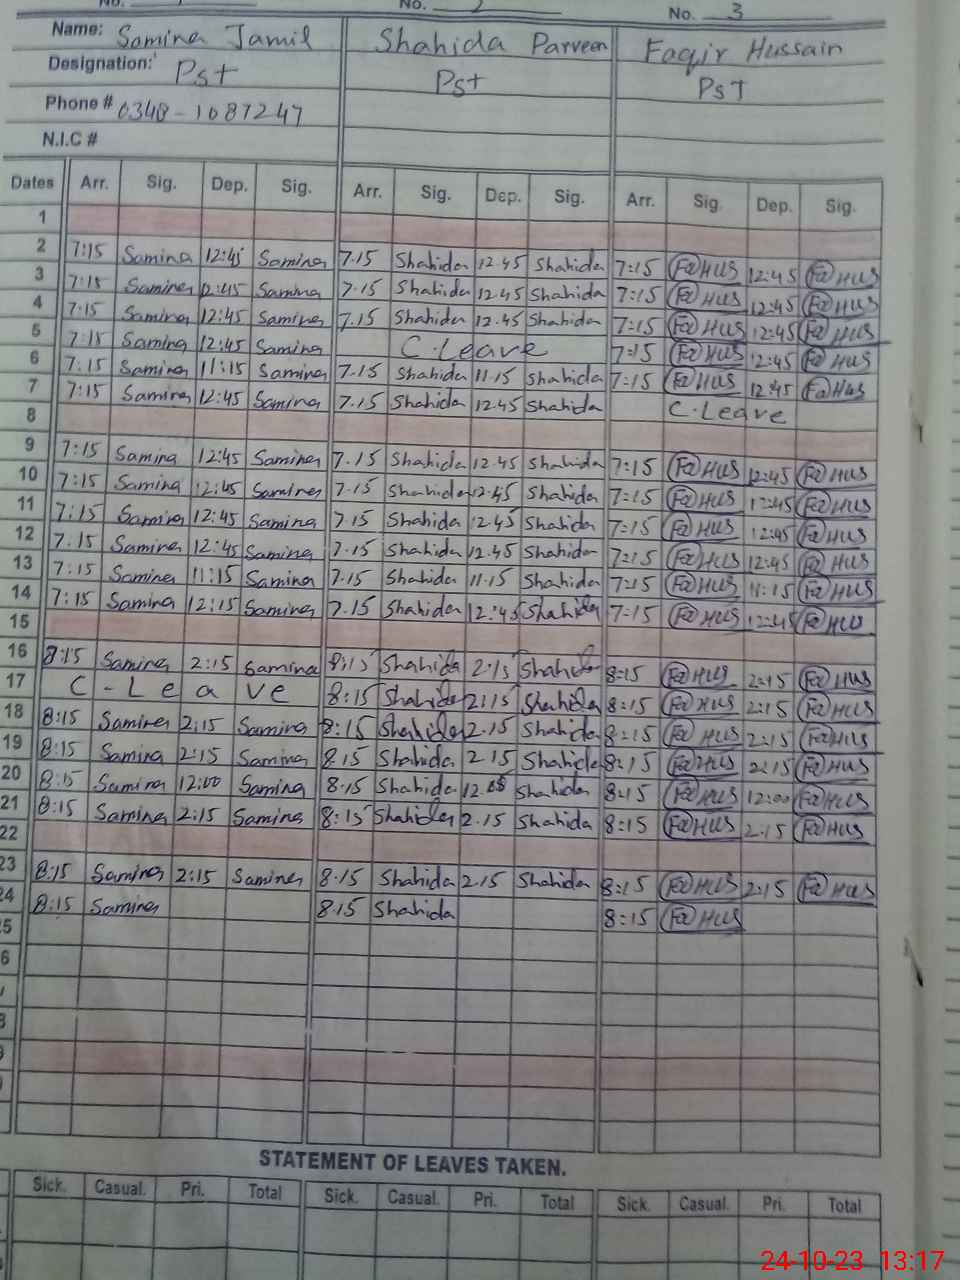 No. No. 2 No. 3
Name: Samina Jamil Shahida Parveen Faqir Hussain
Designation: Pst Pst PST
Phone # 0348-1087247
N.I.C #
Dates Arr. Sig. Dep. Sig. Arr. Sig. Dep. Sig. Arr. Sig. Dep. Sig.
1
2 7:15 Samina 12:45 Samina 7.15 Shahida 12.45 Shahida 7:15 Fa HUS 12:45 Fa HUS
3 7:15 Samina 12:45 Samina 7.15 Shahida 12.45 Shahida 7:15 Fa HUS 12:45 Fa HUS
4 7:15 Samina 12:45 Samina 7.15 Shahida 12.45 Shahida 7:15 Fa HUS 12:45 Fa HUS
5 7:15 Samina 12:45 Samina C.Leave 7:15 Fa HUS 12:45 Fa HUS
6 7:15 Samina 11:15 Samina 7.15 Shahida 11.15 Shahida 7:15 Fa HUS 12:45 Fa HUS
7 7:15 Samina 12:45 Samina 7.15 Shahida 12.45 Shahida C.Leave
8
9 7:15 Samina 12:45 Samina 7.15 Shahida 12.45 Shahida 7:15 Fa HUS 12:45 Fa HUS
10 7:15 Samina 12:45 Samina 7.15 Shahida 12.45 Shahida 7:15 Fa HUS 12:45 Fa HUS
11 7:15 Samina 12:45 Samina 7.15 Shahida 12.45 Shahida 7:15 Fa HUS 12:45 Fa HUS
12 7.15 Samina 12:45 Samina 7.15 Shahida 12.45 Shahida 7:15 Fa HUS 12:45 Fa HUS
13 7:15 Samina 11:15 Samina 7.15 Shahida 11.15 Shahida 7:15 Fa HUS 11:15 Fa HUS
14 7:15 Samina 12:15 Samina 7.15 Shahida 12:45 Shahida 7:15 Fa HUS 12:45 Fa HUS
15
16 8:15 Samina 2:15 Samina 8:15 Shahida 2:15 Shahida 8:15 Fa HUS 2:15 Fa HUS
17 C-Leave 8:15 Shahida 2:15 Shahida 8:15 Fa HUS 2:15 Fa HUS
18 8:15 Samina 2:15 Samina 8:15 Shahida 2.15 Shahida 8:15 Fa HUS 2:15 Fa HUS
19 8:15 Samina 2:15 Samina 8.15 Shahida 2.15 Shahida 8:15 Fa HUS 2:15 Fa HUS
20 8:15 Samina 12:00 Samina 8.15 Shahida Shahida 8:15 Fa HUS 12:00 Fa HUS
21 8:15 Samina 2:15 Samina 8:15 Shahida 2.15 Shahida 8:15 Fa HUS 2:15 Fa HUS
22
23 8:15 Samina 2:15 Samina 8.15 Shahida 2.15 Shahida 8:15 Fa HUS 2:15 Fa HUS
24 8:15 Samina 8.15 Shahida 8:15 Fa HUS
5
6
STATEMENT OF LEAVES TAKEN.
Sick. Casual. Pri. Total Sick. Casual. Pri. Total Sick. Casual. Pri. Total
24-10-23 13:17